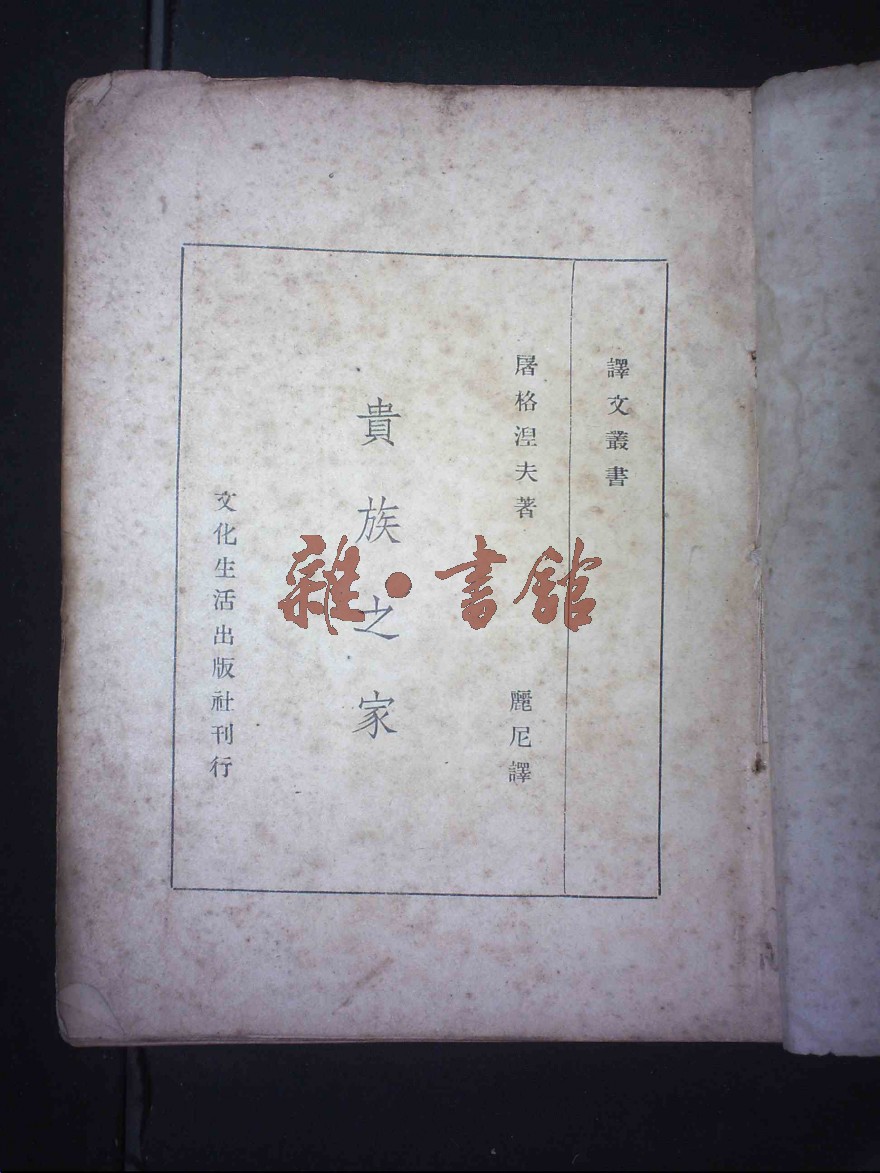 譯文叢書
屠格湼夫著
麗尼譯
貴族之家
文化生活出版社刊行
雜·書館